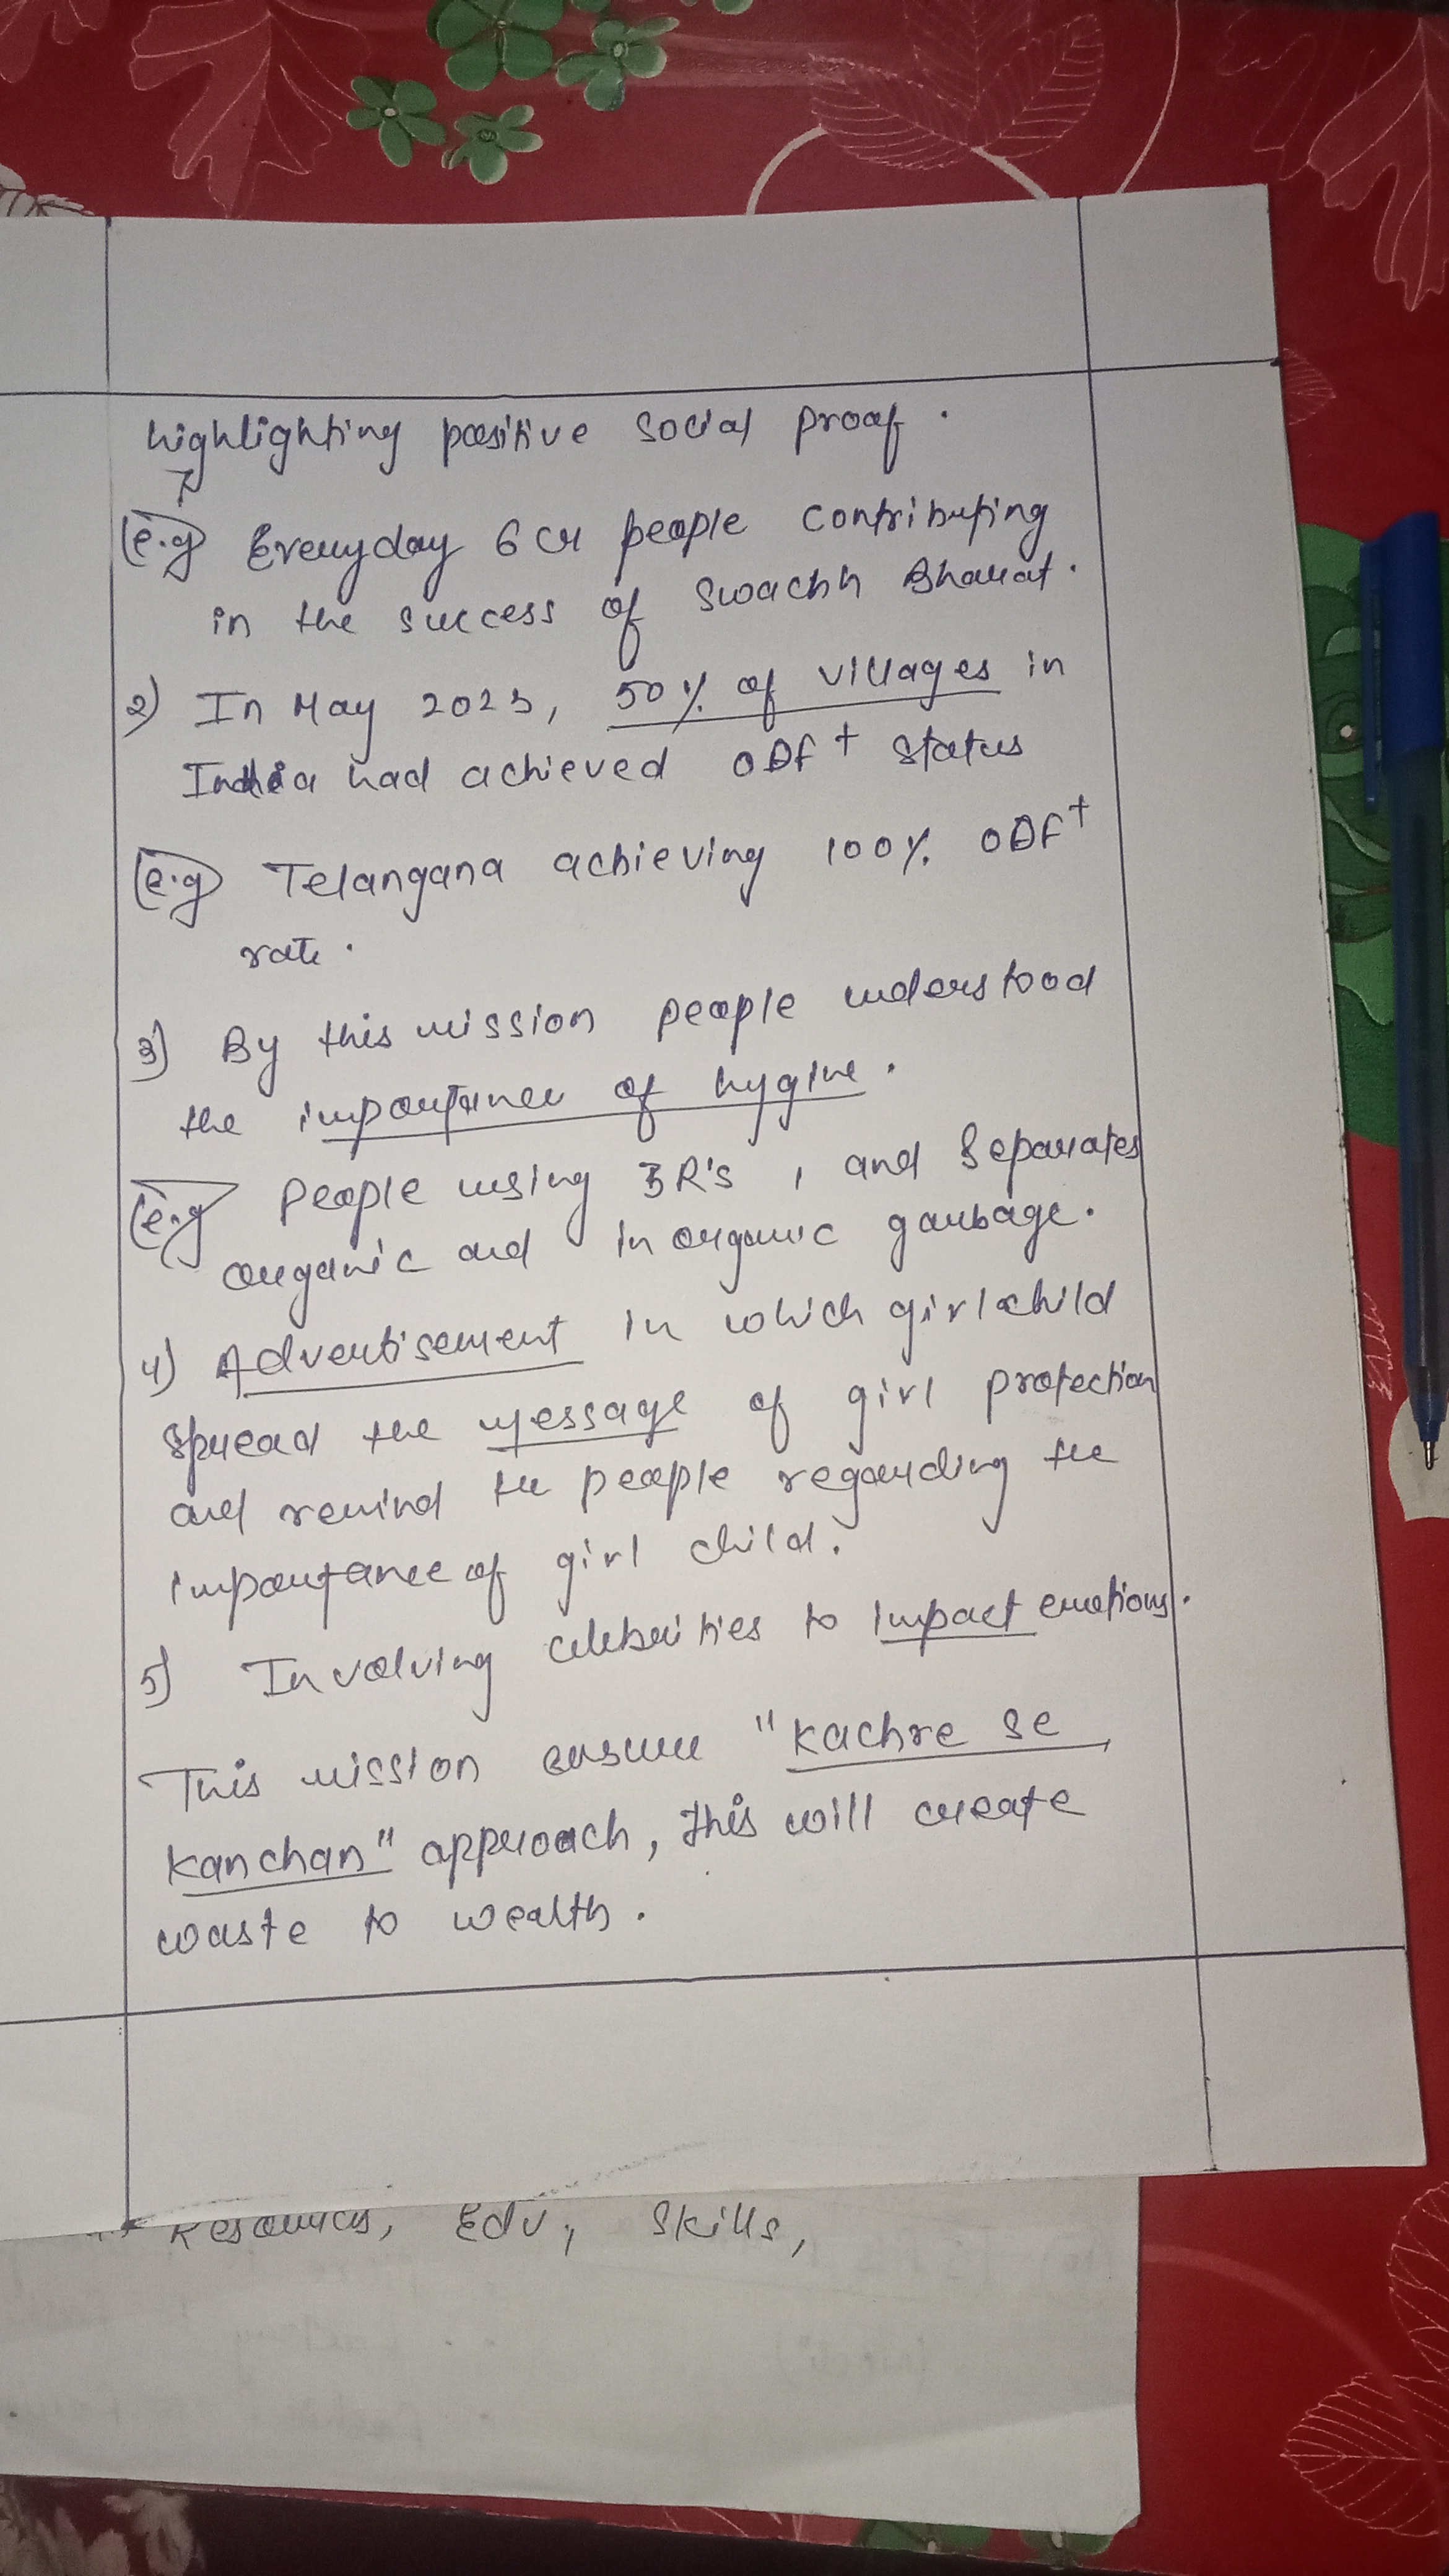 highlighting positive social proof.
(e.g) Everyday 6 cr people contributing
in the success of Swachh Bharat.
2) In May 2023, 50% of villages in
India had achieved ODF+ status
(e.g) Telangana achieving 100% ODF+
rate.
3) By this mission people understood
the importance of hygine.
(e.g) People using 3R's, and Separates
organic and inorganic garbage.
4) Advertisement in which girl child
spread the message of girl protection
and remind the people regarding the
importance of girl child.
5) Involving celebrities to impact emotions.
This mission ensure "Kachre se
kanchan" approach, this will create
waste to wealth.
Resources, Edu, Skills,